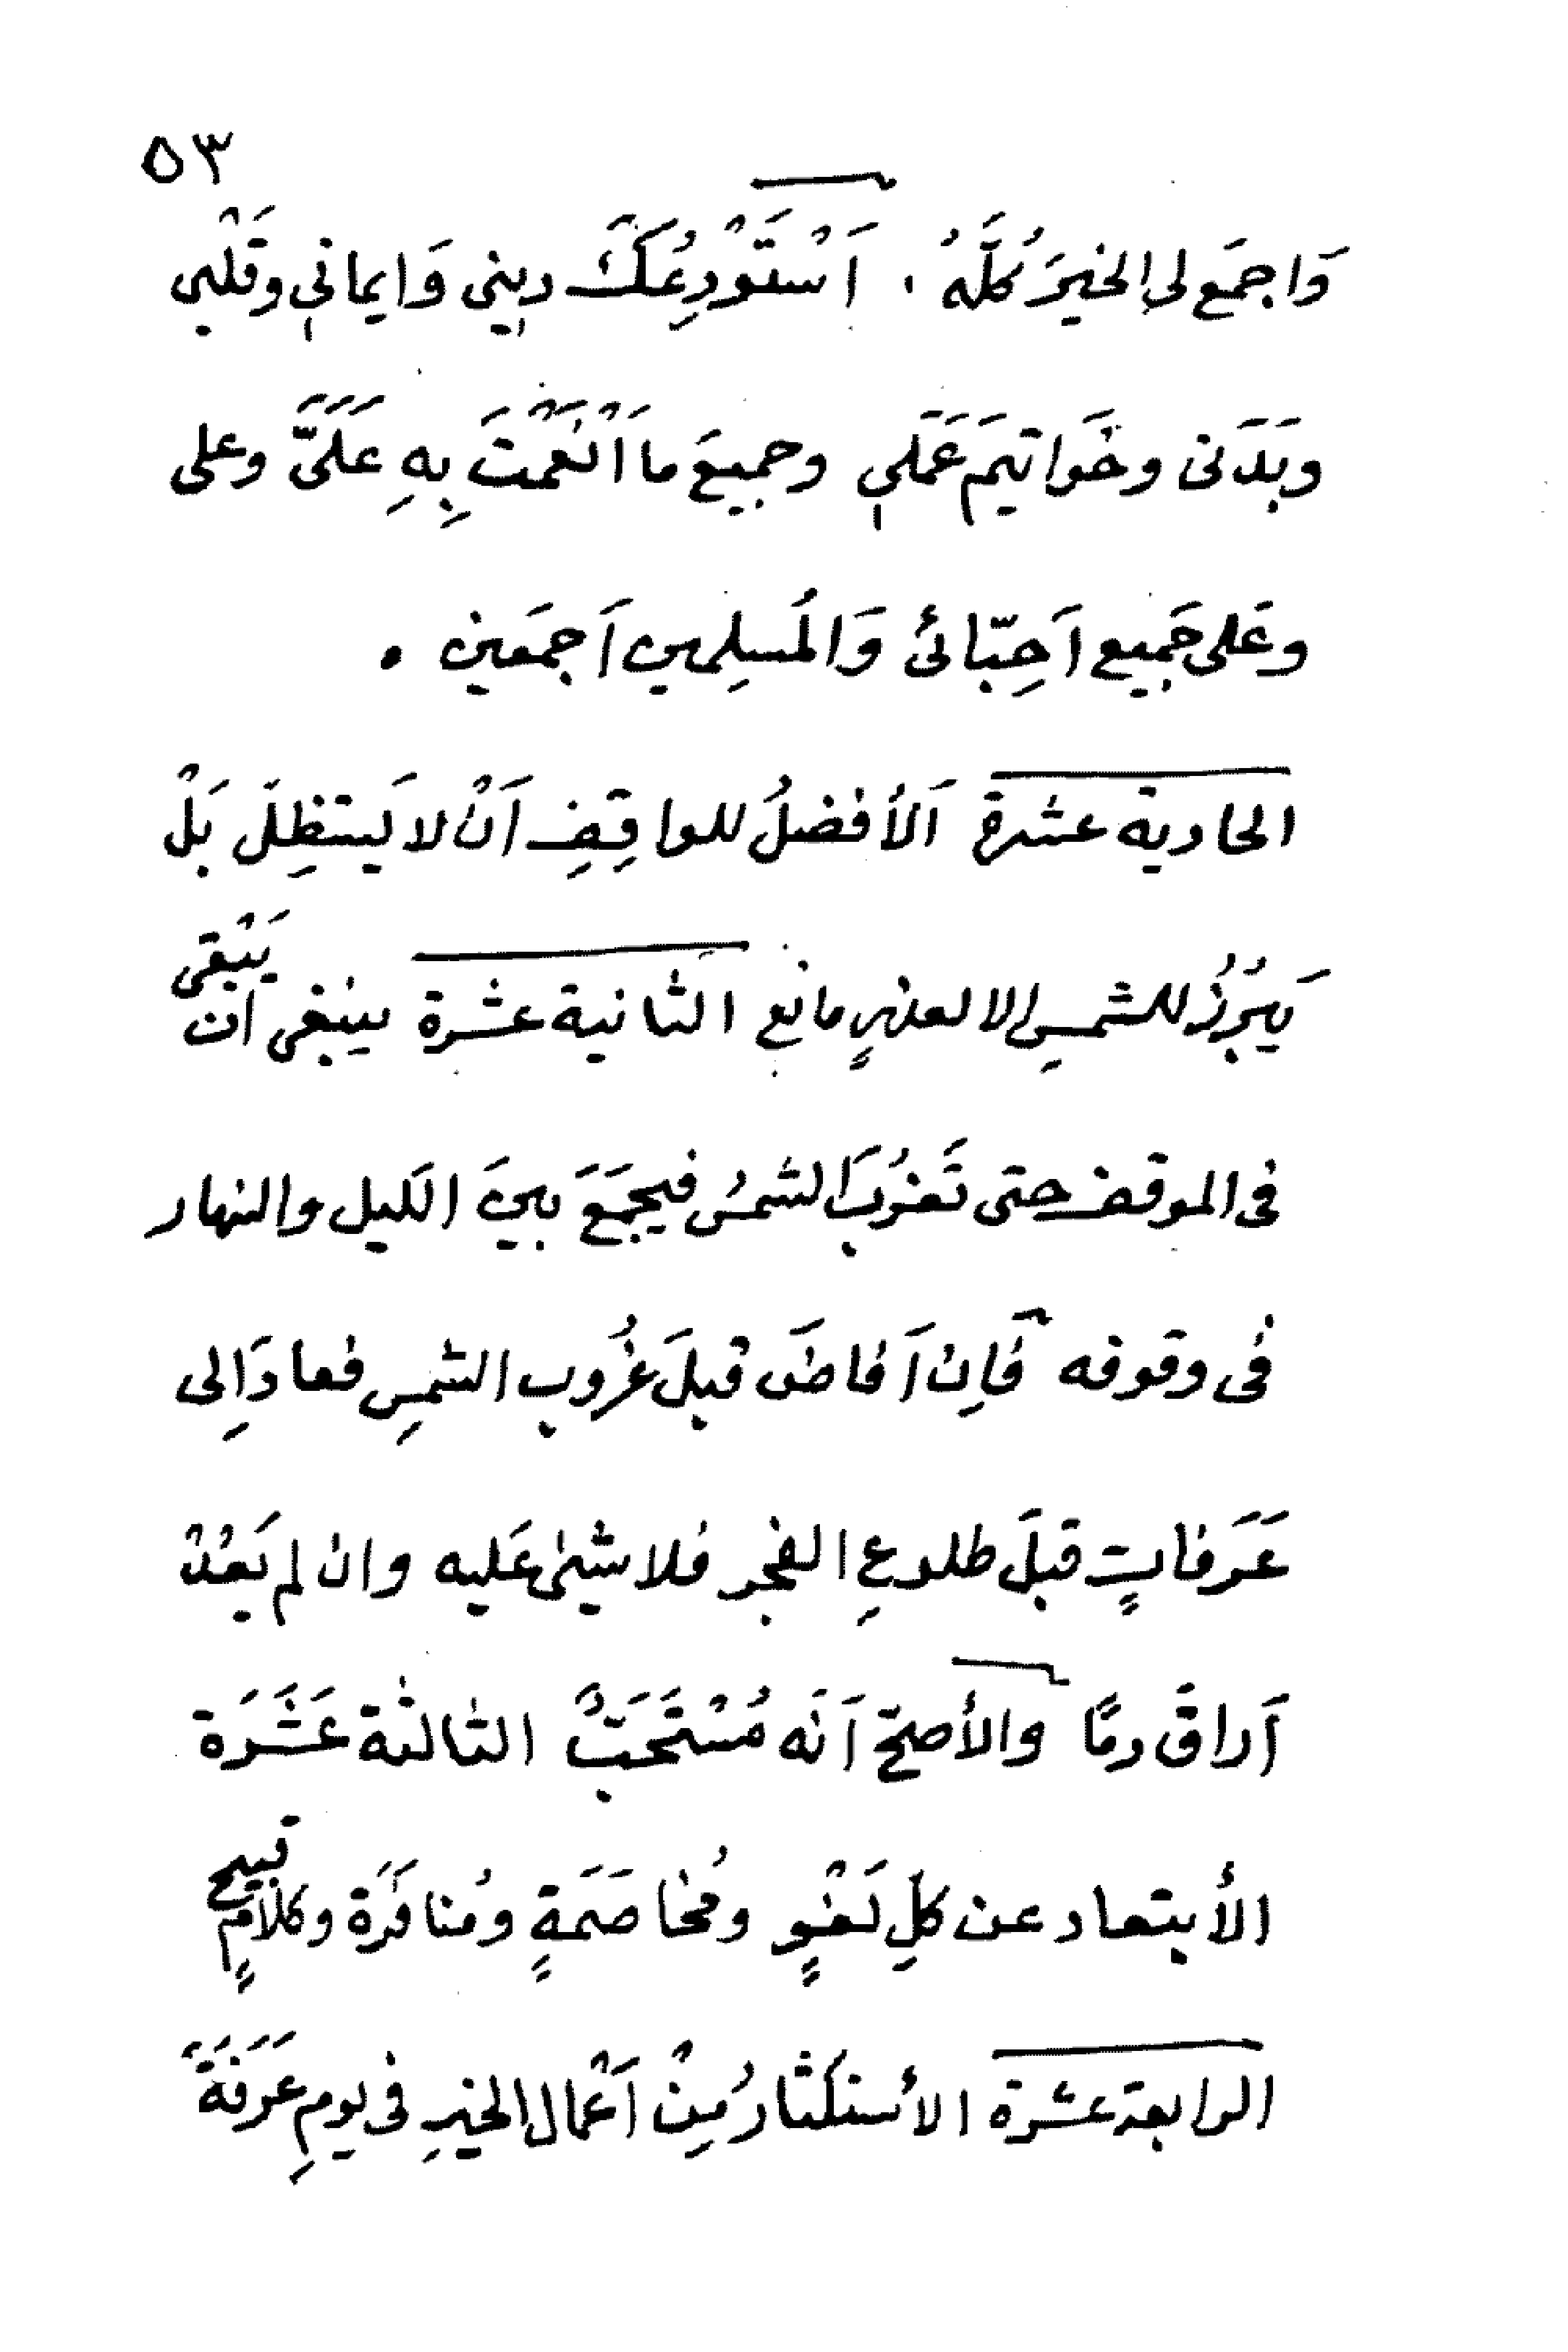 ٥٣
وَاجمَع لى الخيرَ كُلَّهُ . اَسْتَوْدِعُكَ دينى وَايمانى وقَلْبى
وبَدَنى وخَواتيمَ عَمَلى وجميعَ ما اَنْعَمْتَ بِهِ عَلَىَّ وعلى
وعَلى جَميع اَحِبّائى وَالمُسلِمين اَجمَعين .
الحادية عشرة اَلأفضلُ للواقِفِ اَنْ لا يَستظِلَّ بَلْ
يَبرُزُ للشمسِ الا لعذرٍ مانع الثانية عشرة ينبغى ان يَبْقى
فى الموقف حتى تَغرُبَ الشمسُ فيجمَعَ بينَ الَليل والنهار
فى وقوفه فَاِنْ اَفاضَ قبلَ غرُوب الشمسِ فعادَ اِلى
عَرَفاتٍ قبلَ طلوعِ الفجر فلا شيئ عَليه وان لم يَعُدْ
اَراقَ دمًا والأصحّ اَنَه مُسْتَحَبٌّ الثالثة عَشَرَة
الأبتعاد عن كلِ لَغْوٍ ومُخاصَمَةٍ ومُنافَرَة وكلامٍ قبيح
الرابعة عشرة الأستكثارُ مِنْ اَعْمال الخيرِ فى يومِ عَرَفَةَ